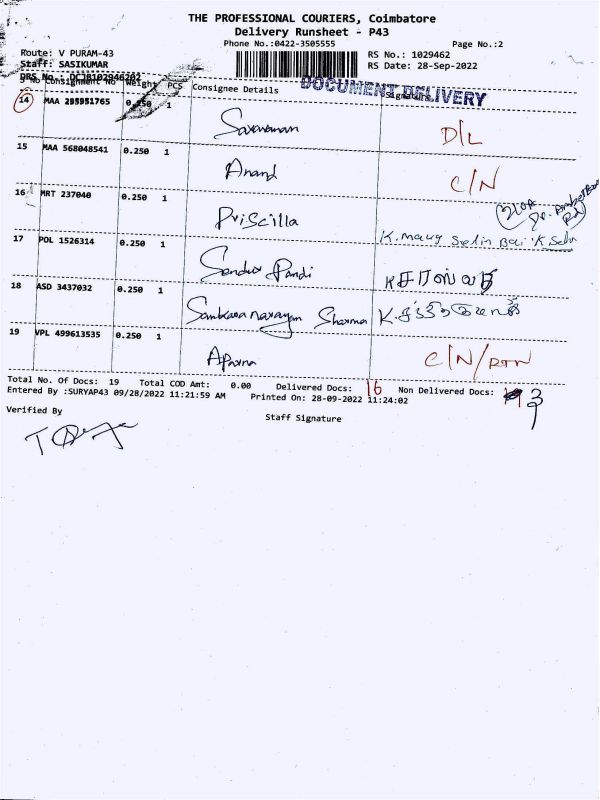 THE PROFESSIONAL COURIERS, Coimbatore
Delivery Runsheet - P43
Phone No.:0422-3505555 Page No.:2
Route: V PURAM-43 RS No.: 1029462
Staff: SASIKUMAR RS Date: 28-Sep-2022
DRS No. DCJB102946202 DOCUMENT DELIVERY
S No Consignment No Weight PCS Consignee Details Signature
14 MAA 295951765 0.250 1 Saravanan D/L
15 MAA 568048541 0.250 1 Anand C/N
16 MRT 237040 0.250 1 Priscilla K. Mary Selin Bai K Seln
17 POL 1526314 0.250 1 Pandi K சரஸ்வதி
18 ASD 3437032 0.250 1 Sankaranarayan Sharma K.
19 VPL 499613535 0.250 1 Aparna C/N/RTN
Total No. Of Docs: 19 Total COD Amt: 0.00 Delivered Docs: 16 Non Delivered Docs: 3
Entered By :SURYAP43 09/28/2022 11:21:59 AM Printed On: 28-09-2022 11:24:02
Verified By Staff Signature